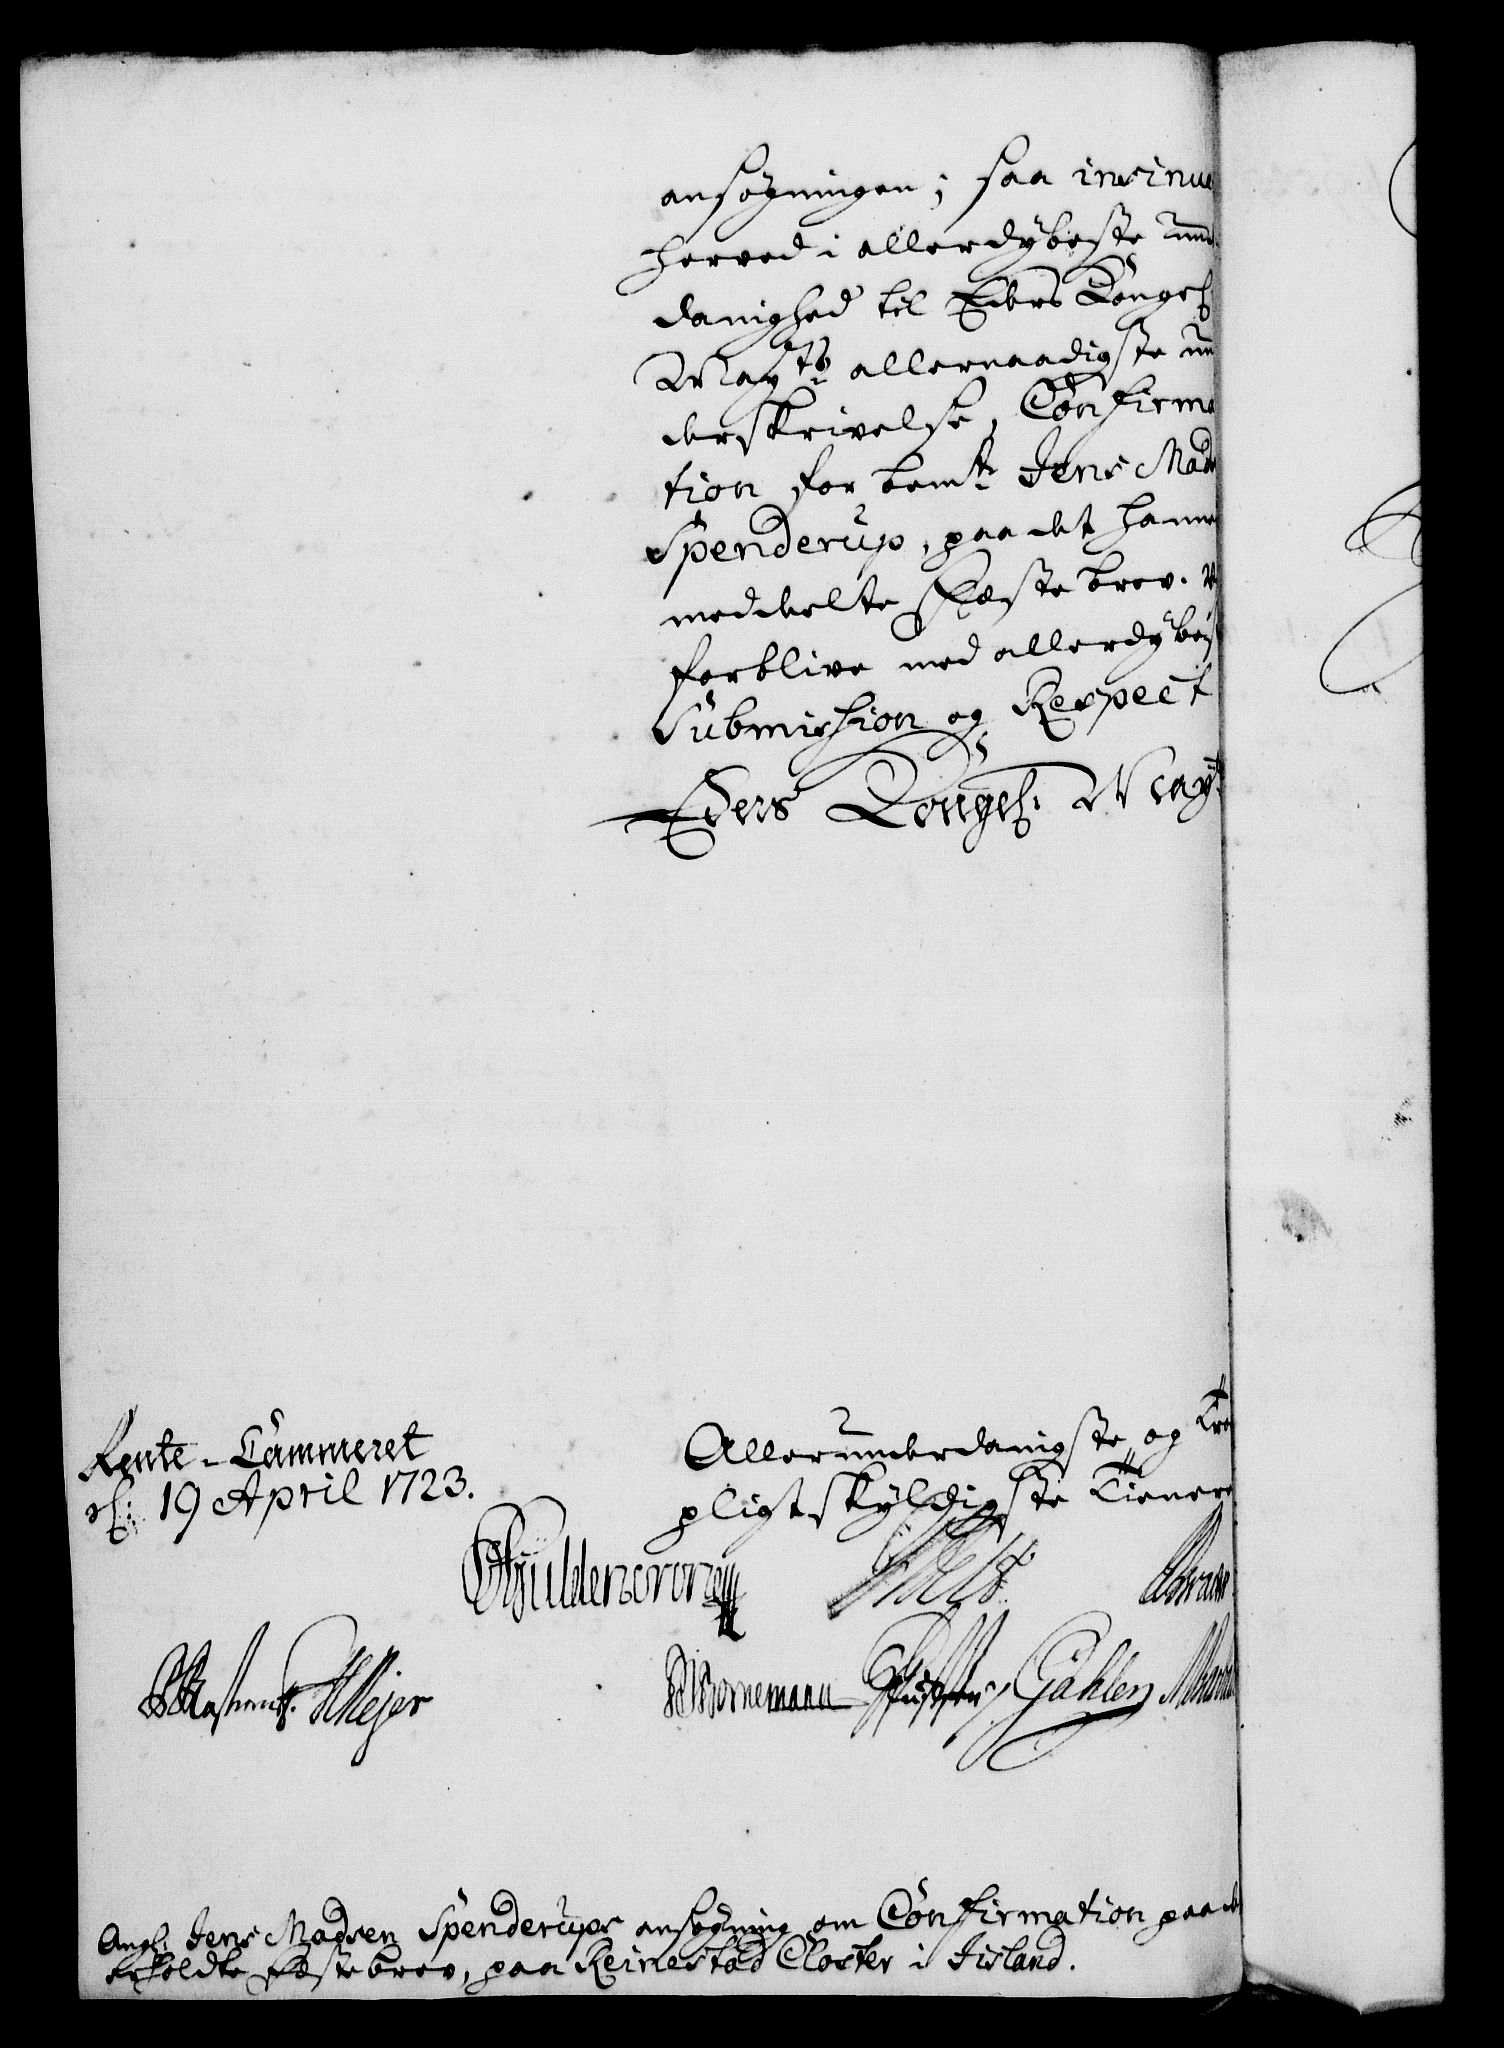 ansøgningen; saa insinue
herved i allerdybeste und
danighed til Eders Kongel
Mayts allernaadigste un
derskrivelse, Confirma
tion for bemte Jens Mads
Spenderup, paa det hannem
meddeelte Fæste brev.
forblive med allerdybes
Submission og Respect
Eders Kongel. Mayt
Rente-Cammeret
d: 19 April 1723.
Allerunderdanigste og Tro
pligtskyldigste Tienere
Gyldencrone
HMejer
Bornemann Gåhlen
Angl. Jens Madsen Spenderups ansøgning om Confirmation paa d
erholdte Fæstebrev, paa Reinestad Closter i Jisland.